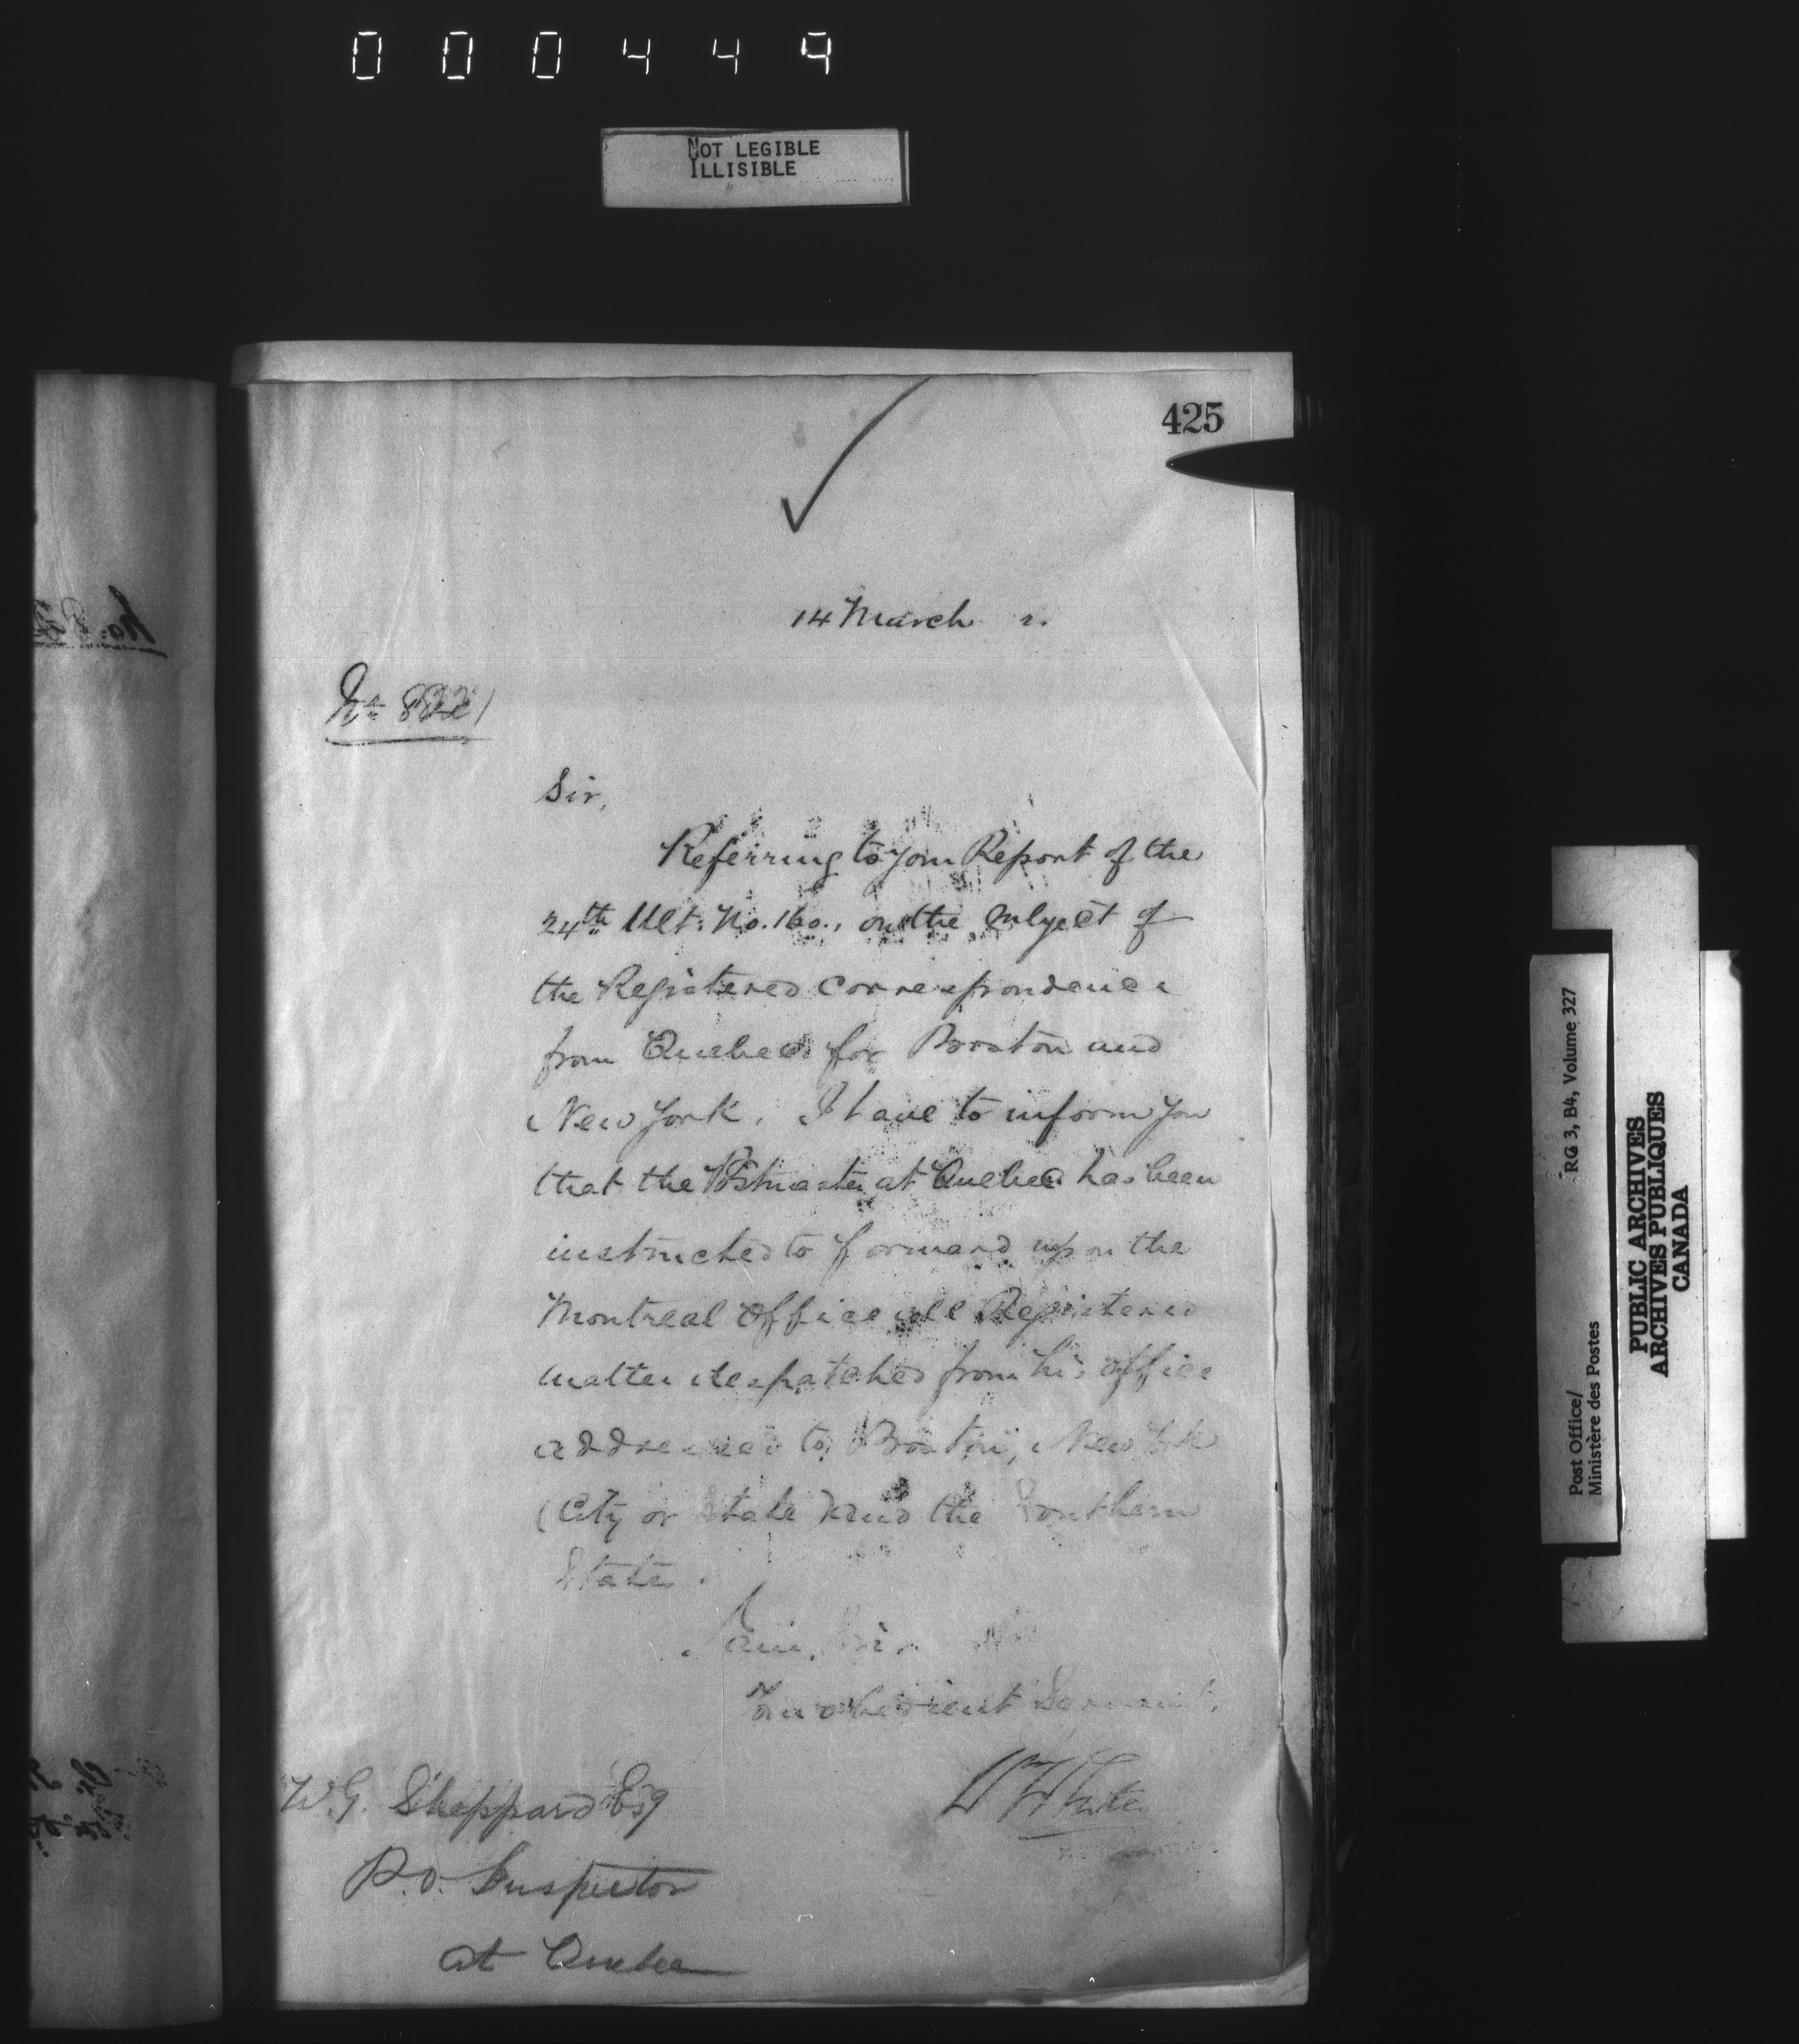 000449
NOT LEGIBLE
ILLISIBLE
425
14 March 2.
Sir,
Referring to your Report of the
24th Ult: No. 160., on the subject of
the Registered correspondence
from Quebec for Boston and
New York, I have to inform you
that the Postmaster at Quebec has been
instructed to forward upon the
Montreal Office all Registered
matter despatched from his office
addressed to Boston, New York
(City or State) and the Southern
States.
I am, Sir,
Your obedient Servant,
W White
W. G. Sheppard Esq
P.O. Inspector
at Quebec
Post Office/
Ministère des Postes
RG 3, B4, Volume 327
PUBLIC ARCHIVES
ARCHIVES PUBLIQUES
CANADA